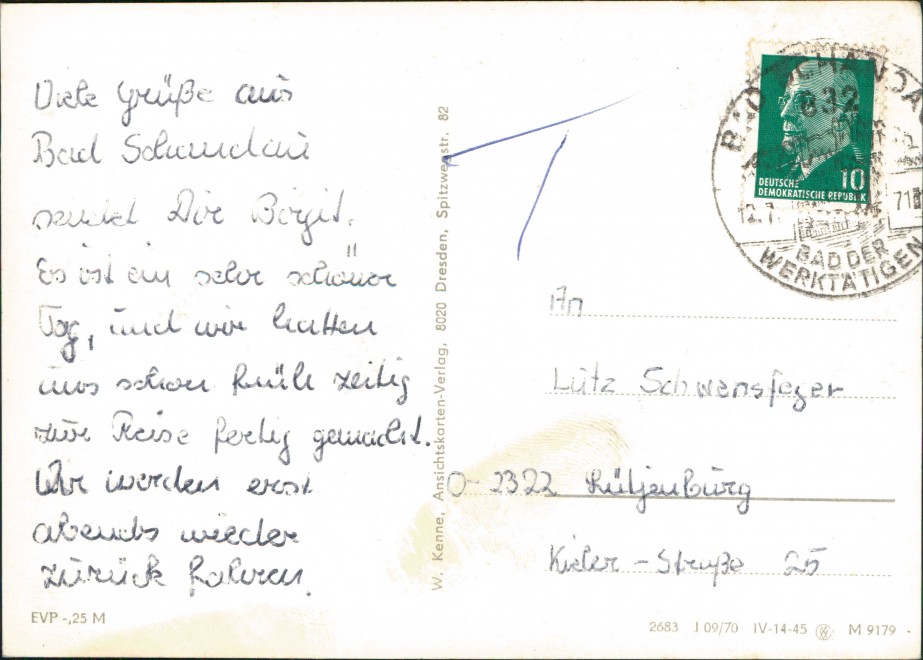 Viele Grüße aus
Bad Schandau
sendet Dir Birgit.
Es ist ein sehr schöner
Tag, und wir hatten
uns schon früh zeitig
zur Reise fertig gemacht.
Wir werden erst
abends wieder
zurück fahren.
EVP -,25 M
W. Kenne, Ansichtskarten-Verlag, 8020 Dresden, Spitzwegstr. 82
T
BAD SCHANDAU
832
12.7.
BAD DER
WERKTÄTIGEN
DEUTSCHE
DEMOKRATISCHE REPUBLIK
10
An
Lutz Schwensfeger
D-2322 Lütjenburg
Kieler-Straße 25
2683 J 09/70 IV-14-45 M 9179